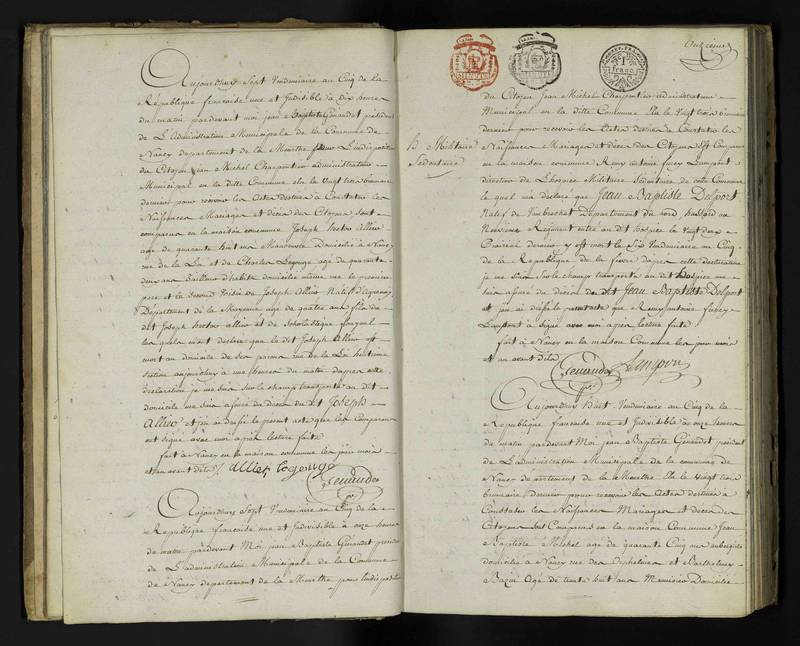 Aujourdhuy Sept Vendemiaire au Cinq de la
République française une et Indivisible à dix heures
du matin pardevant moi jean Baptiste Genaudet president
de L'administration Municipale de la Commune de
Nancy departement de la Meurthe pour L'indisposition
du Citoyen jean Michel Charpentier administrateur
Municipal en la ditte Commune élu le Vingt trois brumaire
dernier pour recevoir les Actes destinés à Constater les
Naissances Mariages et décès des Citoyens sont
comparus en la maison commune Joseph Allier
agé de quarante huit ans Manœuvre Domicilié à Nancy
rue de la Loi et de Charles Legenge agé de quarante
deux ans Tailleur d'habits domicilié même rue le premier
pere et le second Voisin de Joseph Allier Natif
Département de la Mayenne agé de quatre ans fils du
dit Joseph allier et de Scholastique
les quels m'ont déclaré que le dit Joseph Allier est
mort au domicile de son pere rue de la Loi huitieme
Section aujourdhuy à une heure du matin dapres cette
déclaration je me suis sur le champ transporté au dit
domicile me suis assuré du Décès du dit Joseph
Allier et jen ai dressé le présent acte que les Comparans
ont signé avec moi après lecture faite
fait à Nancy en la maison commune les jour mois
et an avant dits. Allier Legenge
Genaudet
Aujourdhuy Sept Vendemiaire au Cinq de la
République française une et Indivisible à onze heures
du matin pardevant Moi jean Baptiste Genaudet president
de L'administration Municipale de la Commune
de Nancy departement de la Meurthe pour lindisposition
onzieme
1
franc
du Citoyen jean Michel Charpentier administrateur
Municipal en la ditte Commune élu le Vingt trois brumaire
dernier pour recevoir les Actes destinés à Constater les
Naissances Mariages et décès des Citoyens est Comparu
en la maison commune Remy antoine furcy Lampont
directeur de L'hospice Militaire Sédentaire de cette Commune
le quel ma déclaré que Jean Baptiste Delport
Natif de Département du nord hussard au
Neuvieme Régiment entré au dit hospice le Vingt deux
Prairial dernier y est mort le Six Vendemiaire au Cinq
de la République de la fievre dapres cette déclaration
je me suis sur le champ transporté au dit hospice me
suis assuré du décès du dit Jean Baptiste Delport
et jen ai dressé le present acte que Remy antoine furcy
Lampont à signé avec moi apres lecture faite
fait à Nancy en la maison Commune les jour mois
et an avant dits
Genaudet Lampont
H. Militaire
Sedentaire
Aujourdhuy huit Vendemiaire au Cinq de la
République française une et Indivisible à onze heures
du matin pardevant Moi jean Baptiste Genaudet président
de L'administration Municipale de la commune de
Nancy departement de la Meurthe élu le vingt trois
brumaire dernier pour recevoir les Actes destinés à
Constater les Naissances Mariages et decès des
Citoyens sont Comparus en la maison Commune Jean
Baptiste Michel agé de quarante Cinq ans aubergiste
domicilié à Nancy rue des Orphelines et Barthelemy
Baqué Agé de trente huit ans Menuisier Domicilié